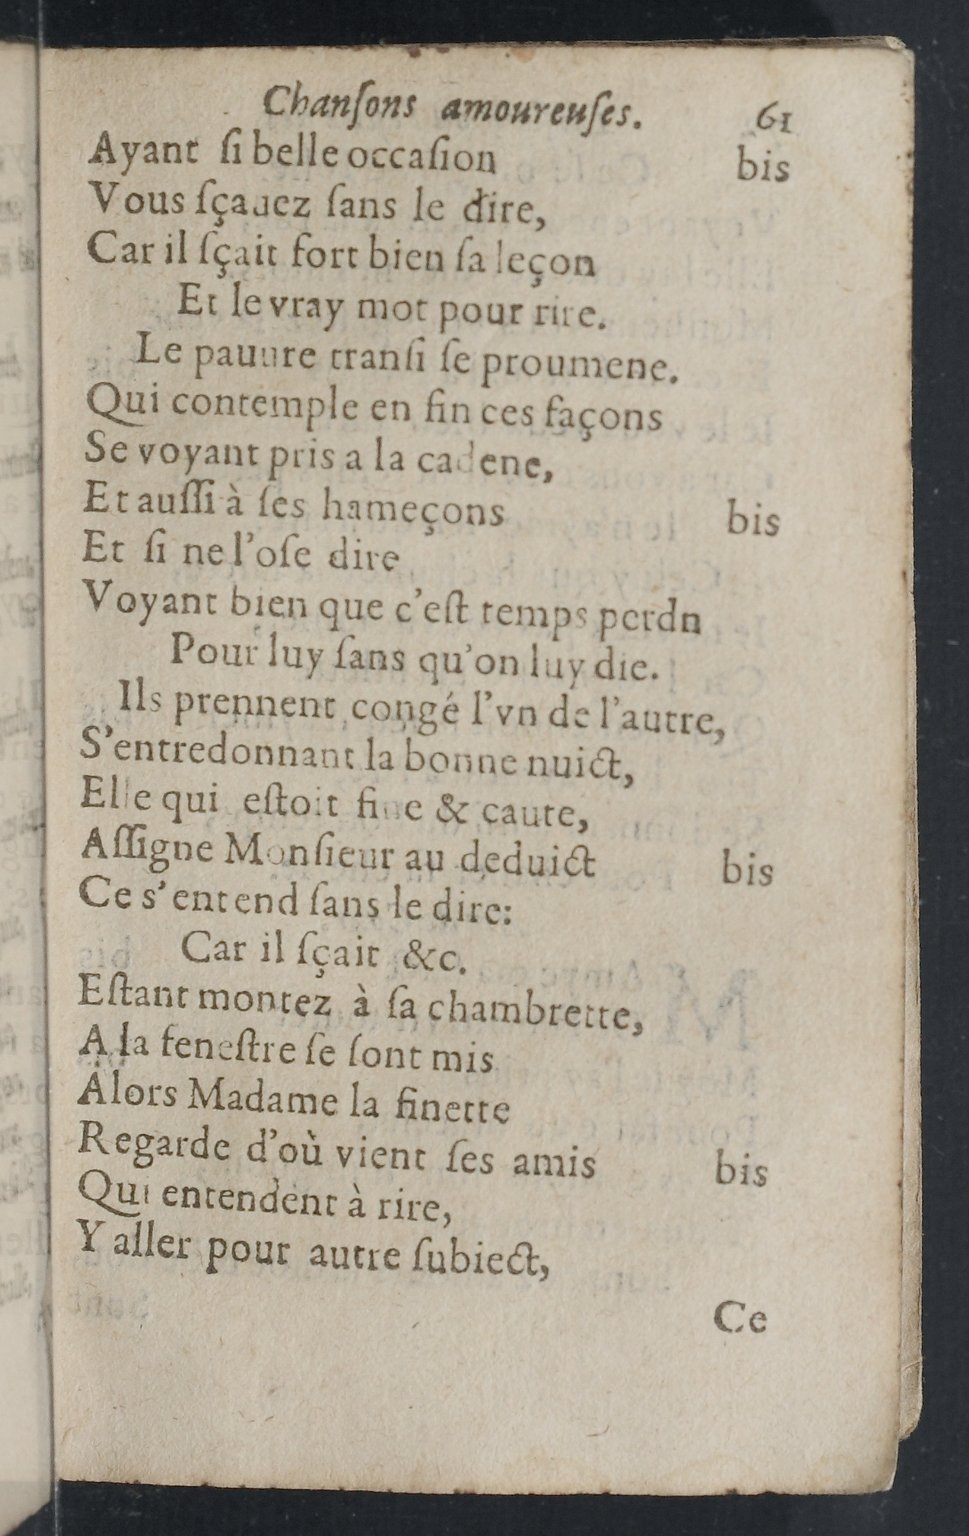 Chanſons amoureuſes. 61
Ayant ſi belle occaſion bis
Vous ſçauez ſans le dire,
Car il ſçait fort bien ſa leçon
Et le vray mot pour rire.
Le pauure tranſi ſe proumene.
Qui contemple en fin ces façons
Se voyant pris a la cadene,
Et auſſi à ſes hameçons bis
Et ſi ne l'oſe dire
Voyant bien que c'eſt temps perdn
Pour luy ſans qu'on luy die.
Ils prennent congé l'vn de l'autre,
S'entredonnant la bonne nuict,
Elle qui eſtoit fine & caute,
Aſſigne Monſieur au deduict bis
Ce s'entend ſans le dire:
Car il ſçait &c.
Eſtant montez à ſa chambrette,
A la feneſtre ſe ſont mis
Alors Madame la finette
Regarde d'où vient ſes amis bis
Qui entendent à rire,
Y aller pour autre ſubiect,
Ce